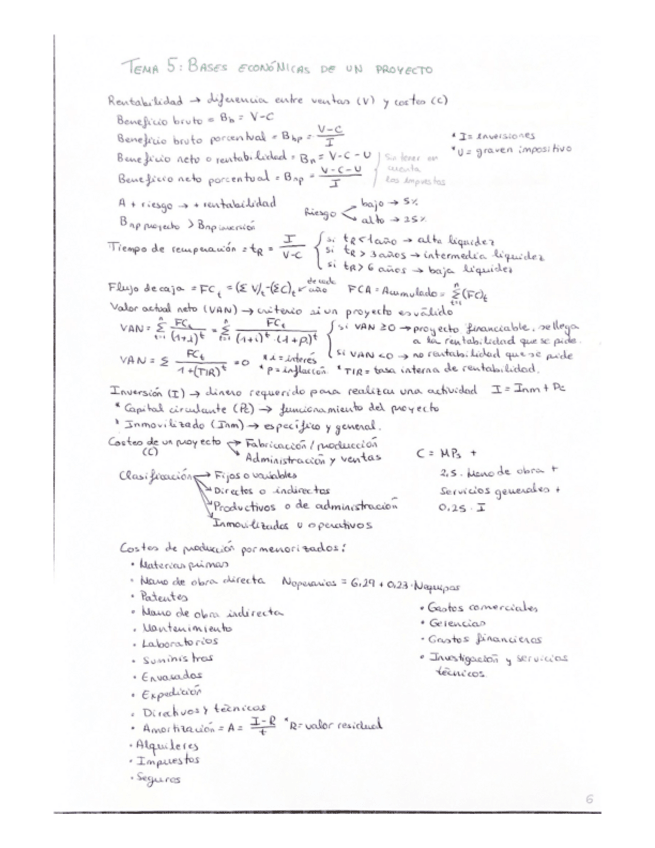 TEMA 5: BASES ECONÓMICAS DE UN PROYECTO
Rentabilidad → diferencia entre ventas (V) y costos (C)
Beneficio bruto = Bb = V-C
Beneficio bruto porcentual = Bbp = V-C / I
* I = inversiones
Beneficio neto o rentabilidad = Bn = V-C-U
* U = graven impositivo
Beneficio neto porcentual = Bnp = V-C-U / I
Sin tener en
cuenta
los impuestos
A + riesgo → + rentabilidad
Riesgo
bajo → 5%
alto → 25%
Bnp proyecto > Bnp inversión
Tiempo de recuperación = tR = I / V-C
si tR < 1 año → alta liquidez
si tR > 3 años → intermedia liquidez
si tR > 6 años → baja liquidez
Flujo de caja = FCt = (Σ V)t - (ΣC)t de cada año
FCA = Acumulado = Σ(FC)t
Valor actual neto (VAN) → criterio si un proyecto es válido
VAN = Σ FCt / (1+i)^t = Σ FCt / (1+i)^t · (1+p)^t
si VAN ≥ 0 → proyecto financiable, se llega
a la rentabilidad que se pide.
si VAN < 0 → no rentabilidad que se pide
VAN = Σ FCt / 1+(TIR)^t = 0
* i = interés
* p = inflación
* TIR = tasa interna de rentabilidad.
Inversión (I) → dinero requerido para realizar una actividad I = Inm + Pc
* Capital circulante (Pc) → funcionamiento del proyecto
* Inmovilizado (Inm) → específico y general.
Costes de un proyecto
(C)
Fabricación / producción
Administración y ventas
C = MPs +
2,5 · Mano de obra +
Servicios generales +
0,25 · I
Clasificación
Fijos o variables
Directos o indirectos
Productivos o de administración
Inmovilizados u operativos
Costos de producción pormenorizados:
• Materias primas
• Mano de obra directa Noperarios = 6,29 + 0,23 · Nequipos
• Patentes
• Mano de obra indirecta
• Mantenimiento
• Laboratorios
• Suministros
• Envasados
• Expedición
• Directivos y técnicos
• Amortización = A = I-R / t * R = valor residual
• Alquileres
• Impuestos
• Seguros
• Gastos comerciales
• Gerencias
• Gastos financieros
• Investigación y servicios
técnicos.
6